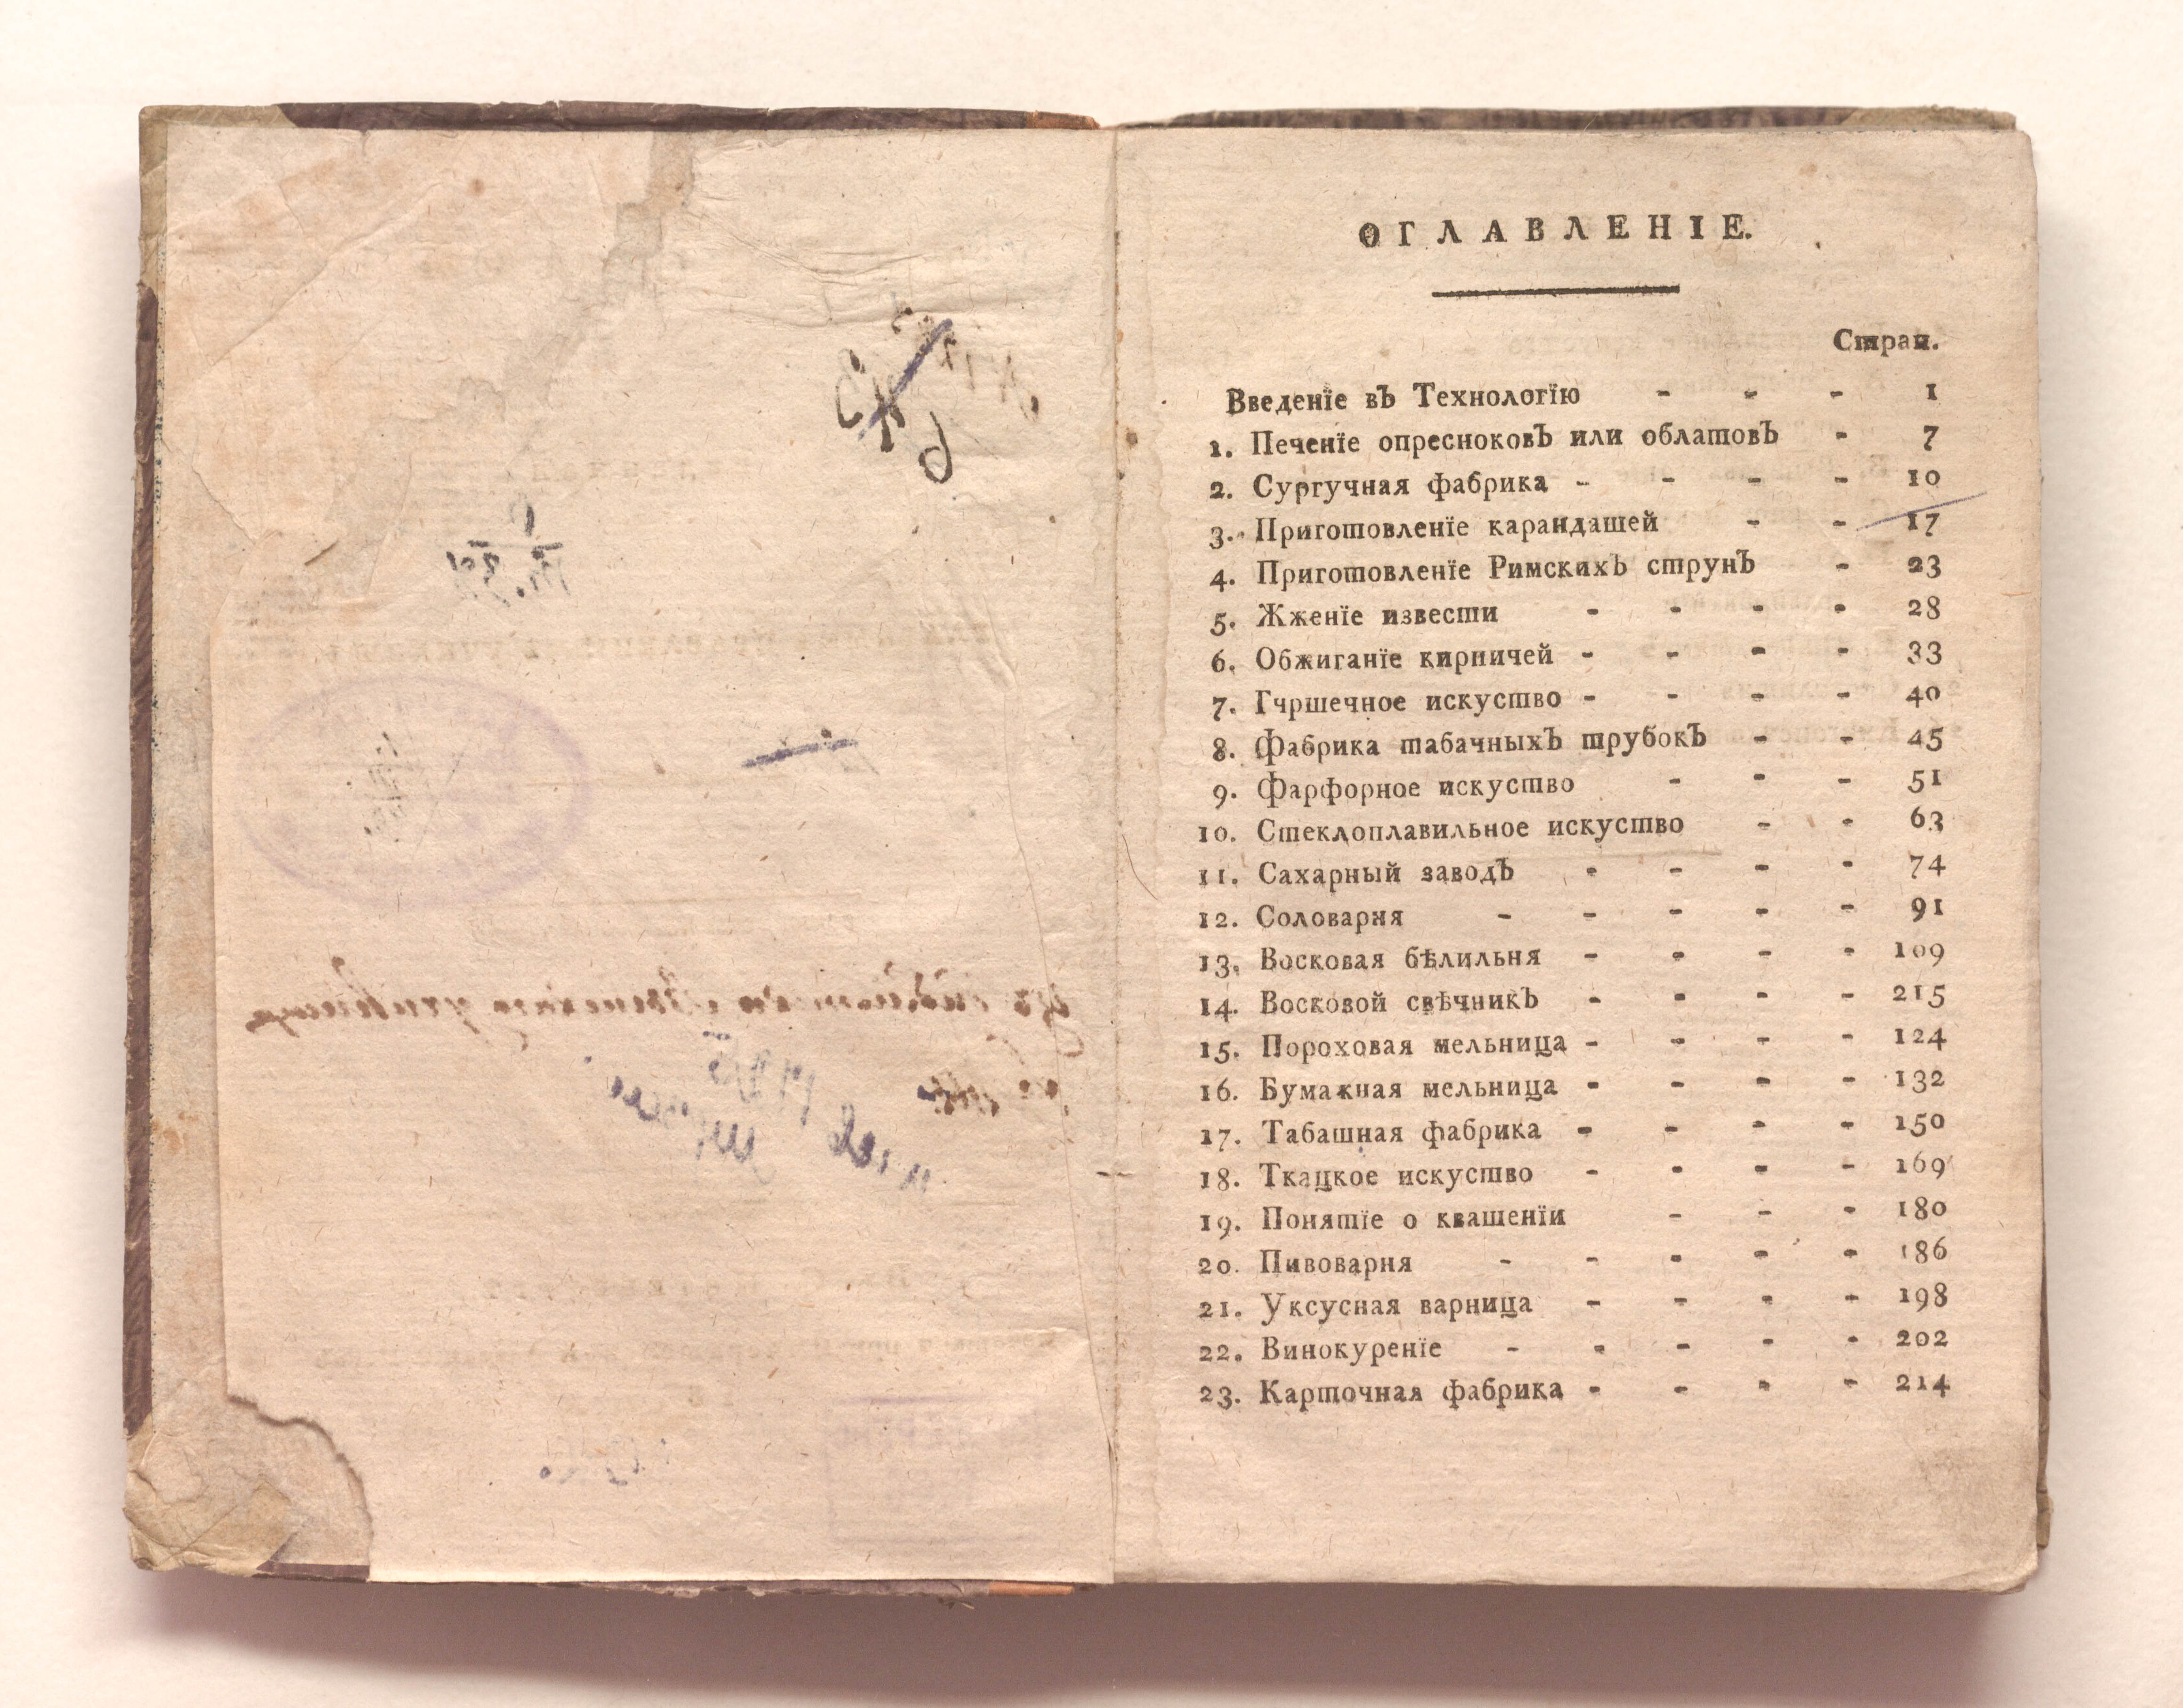 ОГЛАВЛЕНІЕ.
Стран.
Введенїе въ Технологїю - - - 1
1. Печенїе опресноковъ или облатовъ - 7
2. Сургучная фабрика - - - - 10
3. Приготовленїе карандашей - - 17
4. Приготовленїе Римскихъ струнъ - 23
5. Жженїе извести - - - - 28
6. Обжиганїе кирпичей - - - - 33
7. Гчршечное искуство - - - - 40
8. Фабрика табачныхъ трубокъ - - 45
9. Фарфорное искуство - - - 51
10. Стеклоплавильное искуство - - 63
11. Сахарный заводъ - - - - 74
12. Соловарня - - - - - 91
13. Восковая бѣлильня - - - - 109
14. Восковой свѣчникъ - - - - 215
15. Пороховая мельница - - - - 124
16. Бумажная мельница - - - - 132
17. Табашная фабрика - - - - 150
18. Ткацкое искуство - - - - 169
19. Понятїе о квашенїи - - - 180
20. Пивоварня - - - - - 186
21. Уксусная варница - - - - 198
22. Винокуренїе - - - - - 202
23. Карточная фабрика - - - - 214